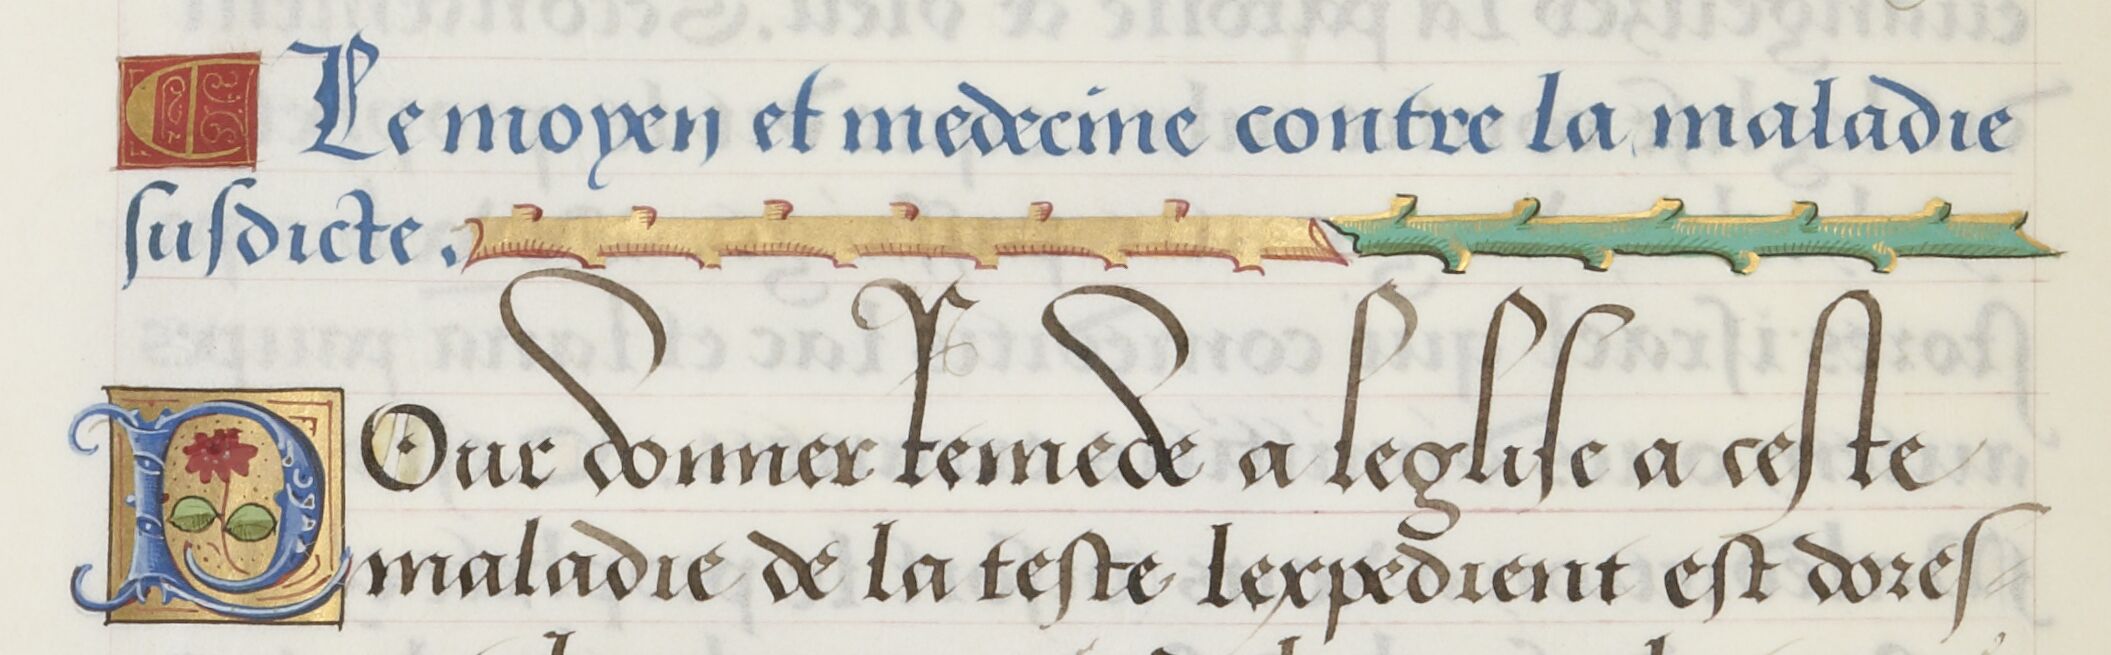 Le moyen et medecine contre la maladie
susdicte.
Pour donner remede a leglise a ceste
maladie de la teste lexpedient est dores